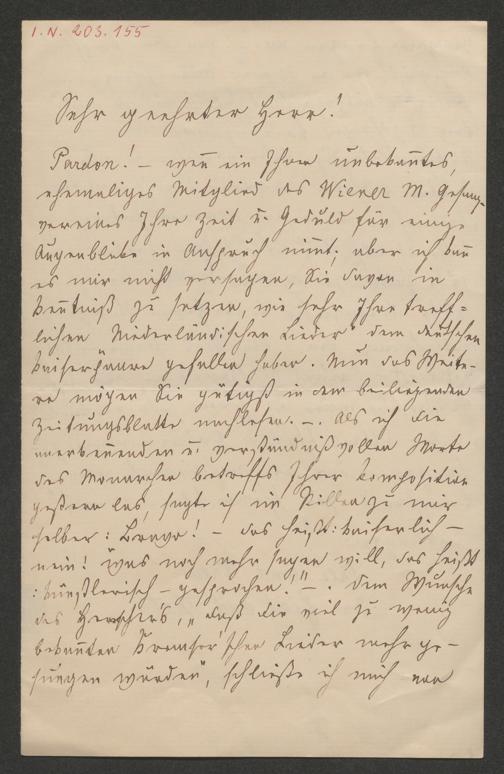 I. N. 203.155
Sehr geehrter Herr!
Pardon! – weñ ein Ihnen unbekañtes,
ehemaliges Mitglied des Wiener M. Gesang-
vereines Ihre Zeit u. Geduld für einige
Augenblicke in Anspruch nim̄t. aber ich kañ
es mir nicht versagen, Sie davon in
Keñtniß zu setzen, wie sehr Ihre treff-
lichen Niederländischen Lieder" dem deutschen
Kaiserpaare gefallen haben. Nun das Weite-
re mögen Sie gütigst in dem beiliegenden
Zeitungsblatte nachlesen. –. Als ich die
anerkeñenden u. verständnißvollen Worte
des Monarchen betreffs Ihrer Komposition
gestern las, sagte ich im Stillen zu mir
selber: Bravo! – das heißt: kaiserlich –
nein! was noch mehr sagen will, das heißt
: künstlerisch – gesprochen!" –. Dem Wunsche
des Herrschers, „daß die viel zu wenig
bekañten Kremser'schen Lieder mehr ge-
sungen würden", schließe ich mich von